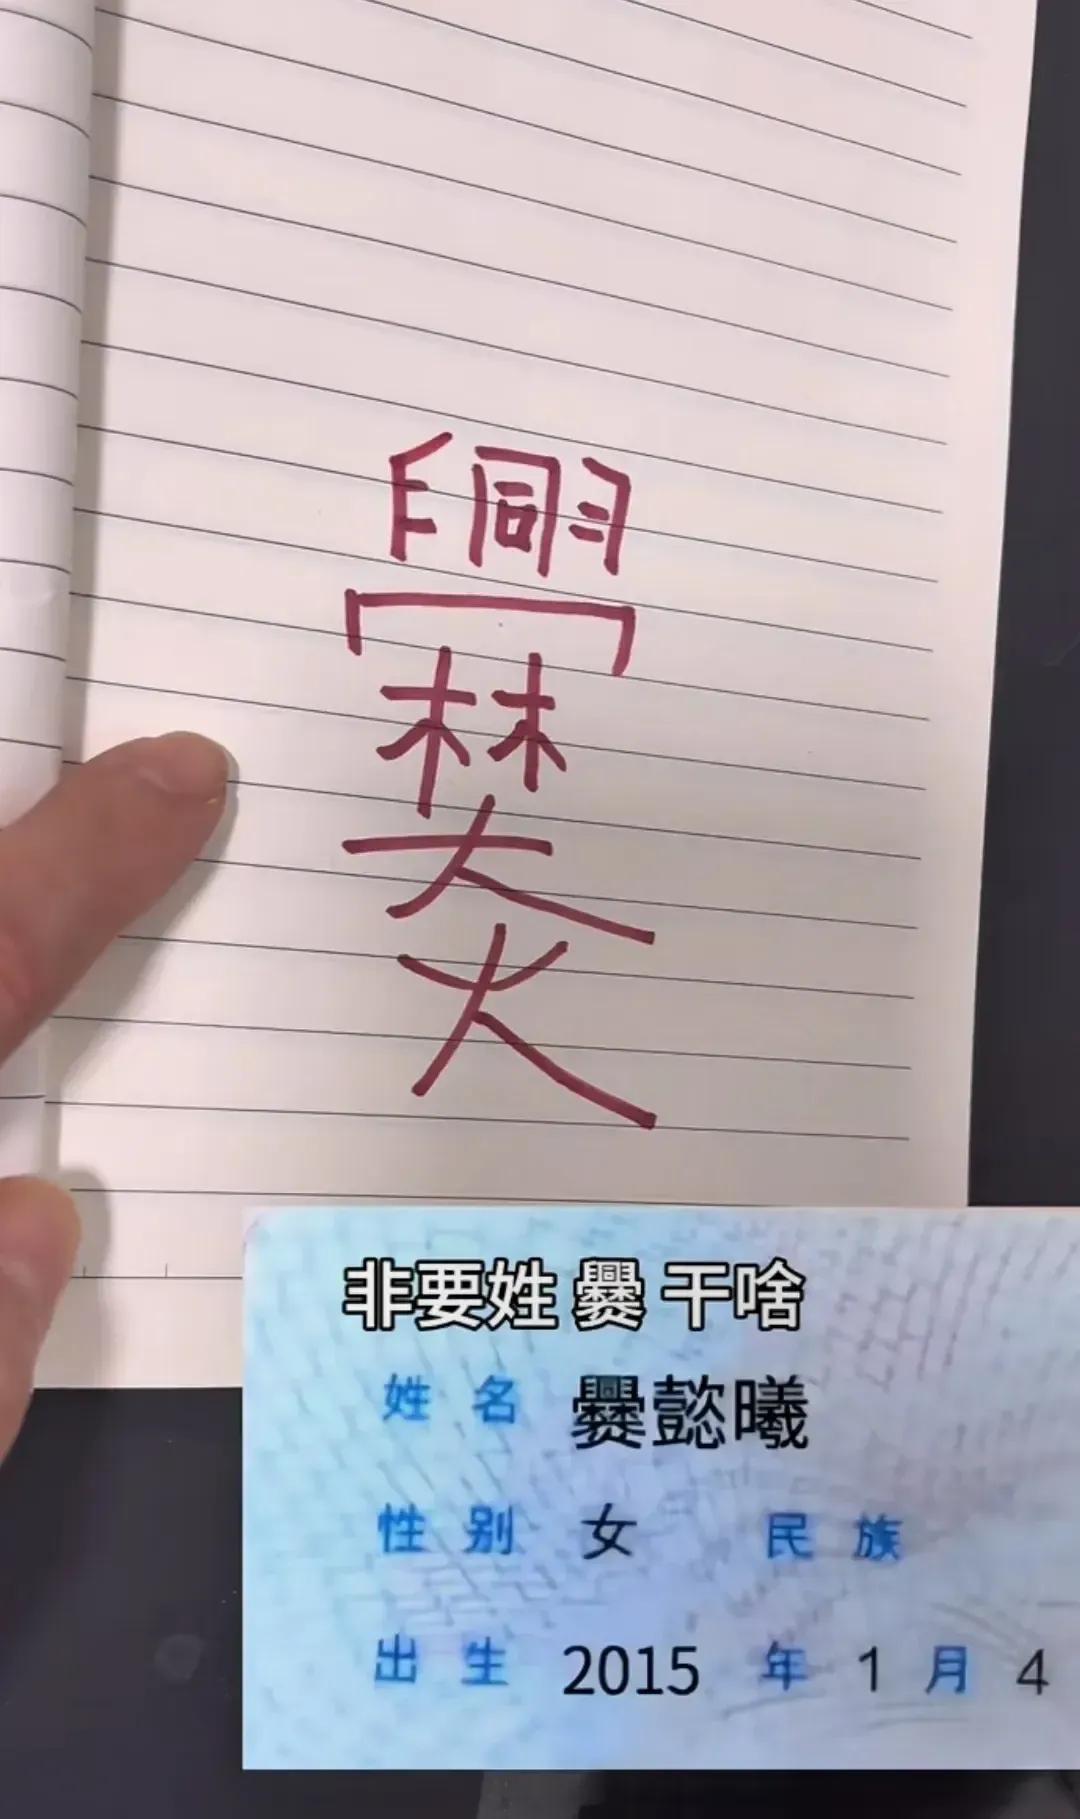 爨
非要姓 爨 干啥
姓名 爨懿曦
性别 女 民族
出生 2015 年 1 月 4